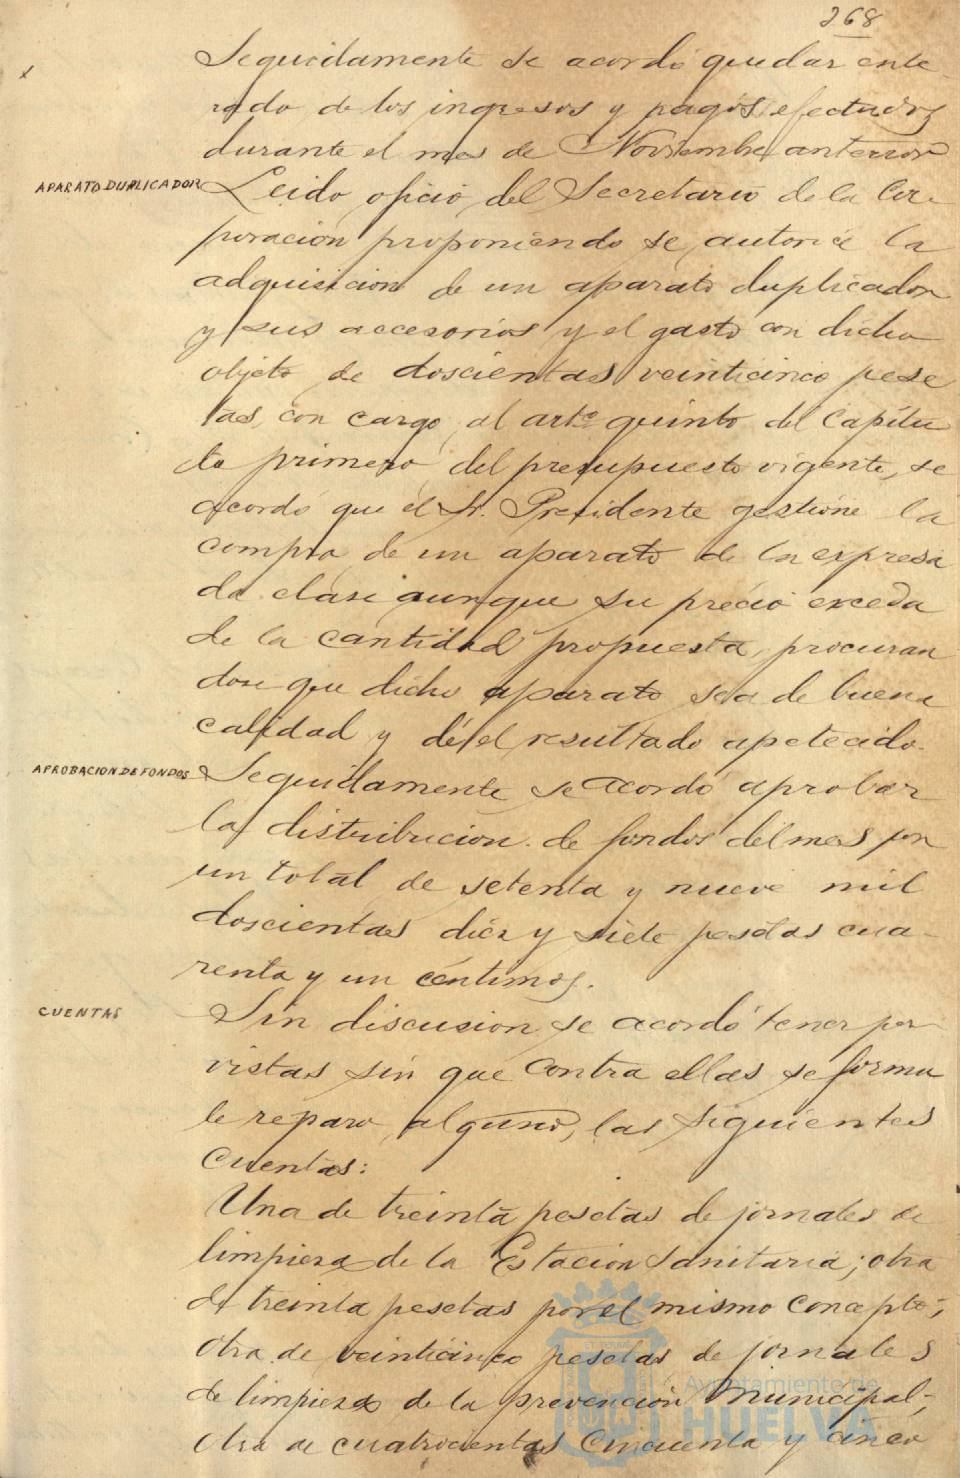 268
Seguidamente se acordó quedar ente-
rado de los ingresos y pagos efectuados
durante el mes de Noviembre anterior
APARATO DUPLICADOR
Leido oficio del Secretario de la Cor-
poracion proponiendo se autorice la
adquisicion de un aparato duplicador
y sus accesorios y el gasto con dicho
objeto de doscientas veinticinco pese
tas, con cargo al artº quinto del Capítu
lo primero del presupuesto vigente, se
acordó que el Sr. Presidente gestione la
compra de un aparato de la expresa
da clase aunque su precio exceda
de la cantidad propuesta, procuran
dose que dicho aparato sea de buena
calidad y dé el resultado apetecido.
APROBACION DE FONDOS
Seguidamente se acordó aprobar
la distribucion de fondos del mes por
un total de setenta y nueve mil
doscientas diez y siete pesetas cua-
renta y un centimos.
CUENTAS
Sin discusion se acordó tener por
vistas sin que contra ellas se formu
le reparo alguno, las siguientes
cuentas:
Una de treinta pesetas de jornales de
limpieza de la Estacion Sanitaria; otra
de treinta pesetas por el mismo concepto;
otra de veinticinco pesetas de jornales
de limpieza de la prevención Municipal;
otra de cuatrocientas cincuenta y cinco
Ayuntamiento de
HUELVA